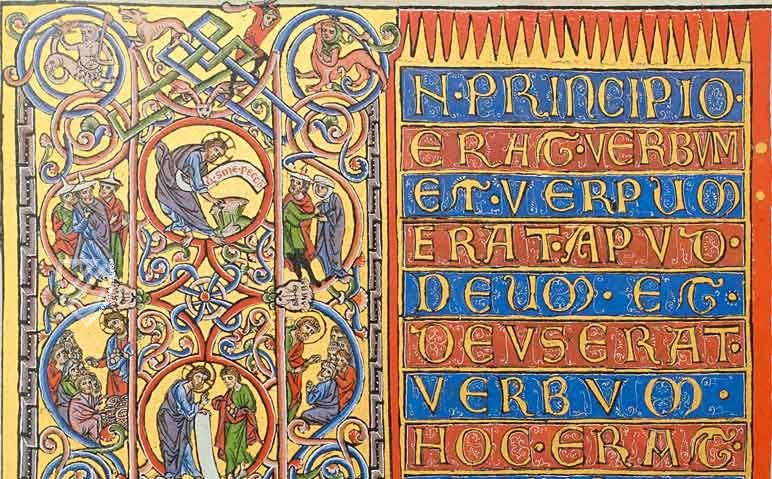 N·PRINCIPIO·
ERAT·VERBVM
ET·VERPUM
ERAT·APVD·
DEUM·ET·
DEVSERAT·
VERBVM·
HOC·ERAT·